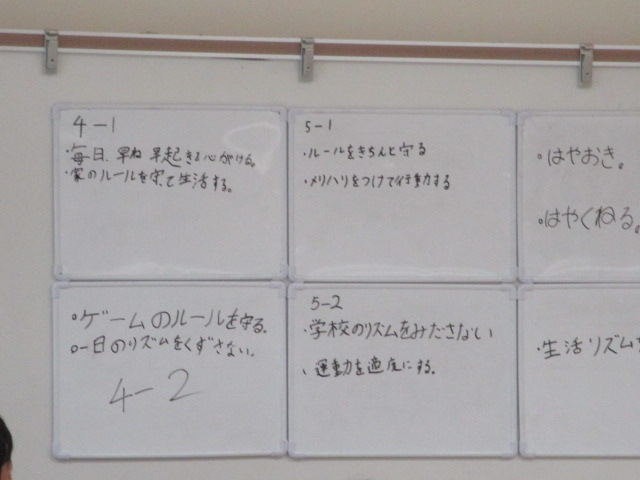 4-1
・毎日、早ね早起きを心がける。
・家のルールを守って生活する。
5-1
・ルールをきちんと守る
・メリハリをつけて行動する
・はやおき。
・はやくねる。
・ゲームのルールを守る。
・一日のリズムをくずさない。
4-2
5-2
・学校のリズムをみださない
・運動を適度にする。
・生活リズム